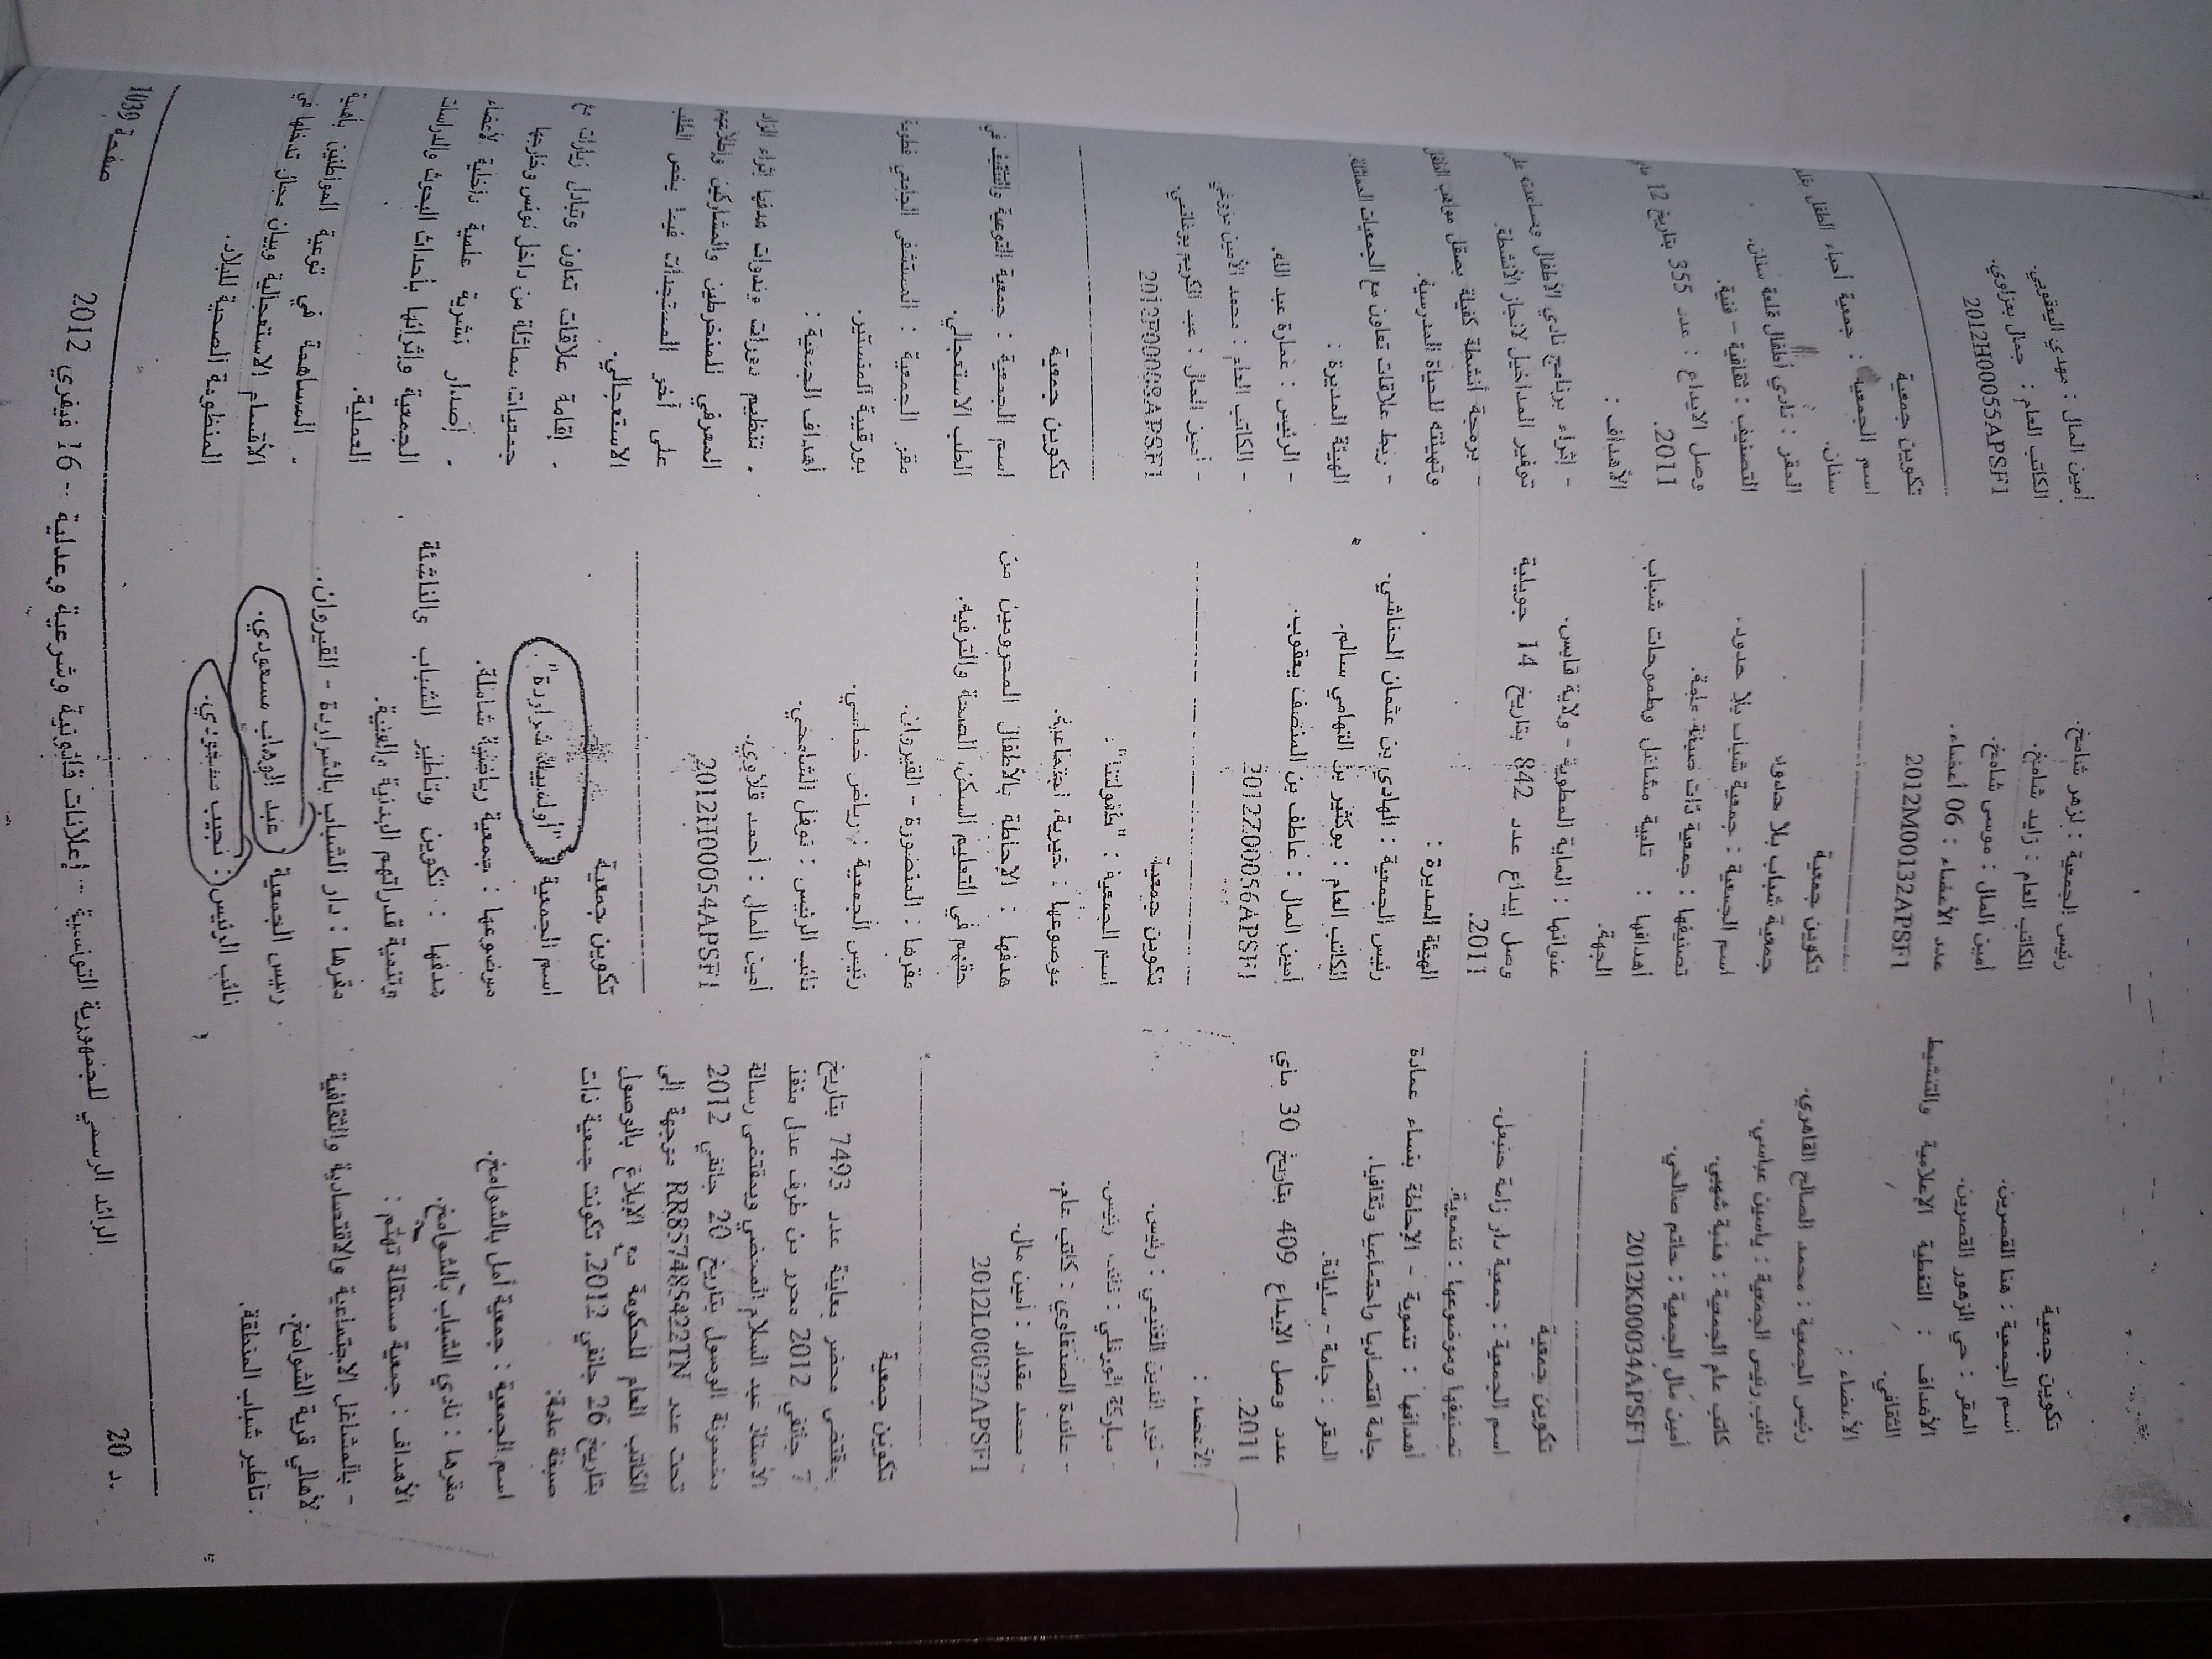 تكوين جمعية
اسم الجمعية : هنا القصرين.
المقر : حي الزهور القصرين.
الأهداف : التغطية الإعلامية والتنشيط
الثقافي.
الأعضاء :
رئيس الجمعية : محمد الصالح القاهري.
نائب رئيس الجمعية : ياسين عباسي.
كاتب عام الجمعية : هنية شهبي.
أمين مال الجمعية : حاتم صالحي.
2012K00034APSF1
تكوين جمعية
اسم الجمعية : جمعية دار زامة حنبعل.
تصنيفها وموضوعها : تنموية.
أهدافها : تنموية - الإحاطة بنساء عمادة
جامة اقتصاديا واجتماعيا وثقافيا.
المقر : جامة - سليانة.
عدد وصل الإيداع 409 بتاريخ 30 ماي
2011.
الأعضاء :
الغنيمي : رئيس.
- مباركة الورغلي : نائب رئيس.
- عائدة الصنهاوي : كاتب عام.
- محمد مقداد : أمين مال.
2012L00032APSF1
تكوين جمعية
بمقتضى محضر معاينة عدد 7493 بتاريخ
7 جانفي 2012 محرر من طرف عدل منفذ
الأستاذ عبد السلام المحضي وبمقتضى رسالة
مضمونة الوصول بتاريخ 20 جانفي 2012
تحت عدد RR857485422TN موجهة إلى
الكاتب العام للحكومة مع الإبلاغ بالوصول
بتاريخ 26 جانفي 2012، تكونت جمعية ذات
صبغة عامة.
اسم الجمعية : جمعية أمل بالشوامخ.
مقرها : نادي الشباب بالشوامخ.
الأهداف : جمعية مستقلة تهتم :
- بالمشاغل الاجتماعية والاقتصادية والثقافية
لأهالي قرية الشوامخ.
. تأطير شباب المنطقة.
رئيس الجمعية : لزهر شامخ.
الكاتب العام : زايد شامخ.
أمين المال : موسى شامخ.
عدد الأعضاء : 06 أعضاء.
2012M00132APSF1
تكوين جمعية
جمعية شباب بلا حدود
اسم الجمعية : جمعية شباب بلا حدود.
تصنيفها : جمعية ذات صبغة عامة.
أهدافها : تلبية مشاغل وطموحات شباب
الجهة.
عنوانها : الماية المطوية - ولاية قابس.
وصل إيداع عدد 842 بتاريخ 14 جويلية
2011.
الهيئة المديرة :
رئيس الجمعية : الهادي بن عثمان الحناشي.
الكاتب العام : بوكثير بن التهامي سالم.
أمين المال : عاطف بن المنصف يعقوب.
2012Z00056APSF1
تكوين جمعية
اسم الجمعية : "طفولتنا".
موضوعها : خيرية، اجتماعية.
هدفها : الإحاطة بالأطفال المحرومين من
حقهم في التعليم السكن، الصحة والترفيه.
مقرها : المنصورة - القيروان.
رئيس الجمعية : رياض خماسي.
نائب الرئيس : نوفل الشامخي.
أمين المال : أحمد قلاوي.
2012H00054APSF1
تكوين جمعية
اسم الجمعية "أولمبيك شراردة".
موضوعها : جمعية رياضية شاملة.
هدفها : تكوين وتأطير الشباب والناشئة
وتنمية قدراتهم البدنية والفنية.
مقرها : دار الشباب بالشراردة - القيروان.
رئيس الجمعية : عبد الوهاب سعودي.
نائب الرئيس : نجيب سعودي.
أمين المال : مهدي اليعقوبي.
الكاتب العام : جمال بعزاوي.
2012H00055APSF1
تكوين جمعية
اسم الجمعية : جمعية أحباء الطفل
سنان.
المقر : نادي أطفال قلعة سنان.
التصنيف : ثقافية - فنية.
وصل الإيداع : عدد 355 بتاريخ 12
2011.
الأهداف :
- إثراء برنامج نادي الأطفال ومساعدته على
توفير المداخيل لانجاز الأنشطة.
- برمجة أنشطة كفيلة بصقل مواهب الطفل
وتهيئته للحياة المدرسية.
- ربط علاقات تعاون مع الجمعيات المماثلة.
الهيئة المديرة :
- الرئيس : عمارة عبد الله.
- الكاتب العام : محمد الأمين مرزوقي
- أمين المال : عبد الكريم بوغانمي
2012F00089APSF1
تكوين جمعية
اسم الجمعية : جمعية التوعية والتثقيف في
الطب الاستعجالي.
مقر الجمعية : المستشفى الجامعي فطومة
بورقيبة المنستير.
أهداف الجمعية :
. تنظيم دورات وندوات هدفها إثراء الزاد
المعرفي للمنخرطين والمشاركين وإطلاعهم
على آخر المستجدات فيما يخص الطب
الاستعجالي.
. إقامة علاقات تعاون وتبادل زيارات مع
جمعيات مماثلة من داخل تونس وخارجها
. إصدار نشرية علمية داخلية لأعضاء
الجمعية وإثرائها بأحداث البحوث والدراسات
العملية.
. المساهمة في توعية المواطنين بأهمية
الأقسام الاستعجالية وبيان مجال تدخلها في
المنظومة الصحية للبلاد.
دد 20
الرائد الرسمي للجمهورية التونسية -- إعلانات قانونية وشرعية وعدلية -- 16 فيفري 2012
صفحة 1039